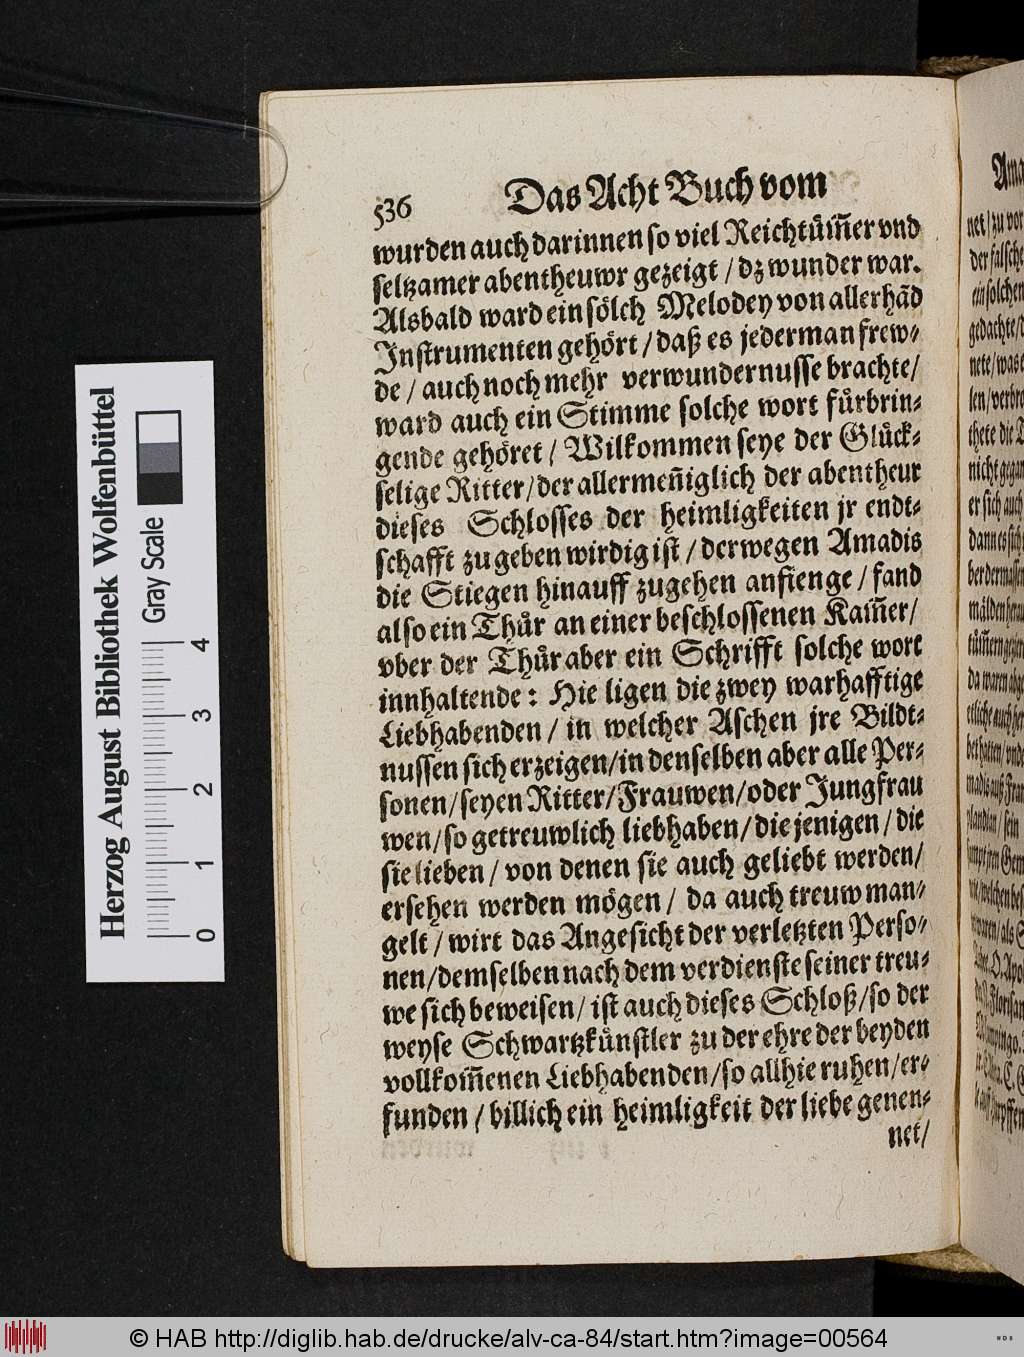 536 Das Acht Buch vom
wurden auch darinnen so viel Reichtům̃er vnd
seltzamer abentheuwr gezeigt / dz wunder war.
Alsbald ward ein sölch Melodey von allerhãd
Instrumenten gehört / daß es jederman frew⸗
de / auch noch mehr verwundernusse brachte /
ward auch ein Stimme solche wort fůrbrin⸗
gende gehöret / Wilkommen seye der Glůck⸗
selige Ritter / der allermeñiglich der abentheur
dieses Schlosses der heimligkeiten jr endt⸗
schafft zu geben wirdig ist / derwegen Amadis
die Stiegen hinauff zugehen anfienge / fand
also ein Thůr an einer beschlossenen Kam̃er /
vber der Thůr aber ein Schrifft solche wort
innhaltende: Hie ligen die zwey warhafftige
Liebhabenden / in welcher Aschen jre Bildt⸗
nussen sich erzeigen / in denselben aber alle Per⸗
sonen / seyen Ritter / Frauwen / oder Jungfrau
wen / so getreuwlich liebhaben / die jenigen / die
sie lieben / von denen sie auch geliebt werden /
ersehen werden mögen / da auch treuw man⸗
gelt / wirt das Angesicht der verletzten Perso⸗
nen / demselben nach dem verdienste seiner treu⸗
we sich beweisen / ist auch dieses Schloß / so der
weyse Schwartzkůnstler zu der ehre der beyden
vollkom̃enen Liebhabenden / so allhie ruhen / er⸗
funden / billich ein heimligkeit der liebe genen⸗
net /
Ama
net / zu vor
der falsche
ein solchen
gedachte /
nete / was
len / verbro
thete die T
nicht gegan
er sich auch
dann es sich
ber dermassen
mälden herau
tům̃ern gezier
da waren abge
etliche auch her
bet hatten / vnde
madis auß Fran
Herzog August Bibliothek Wolfenbüttel
Gray Scale
0 1 2 3 4
© HAB http://diglib.hab.de/drucke/alv-ca-84/start.htm?image=00564